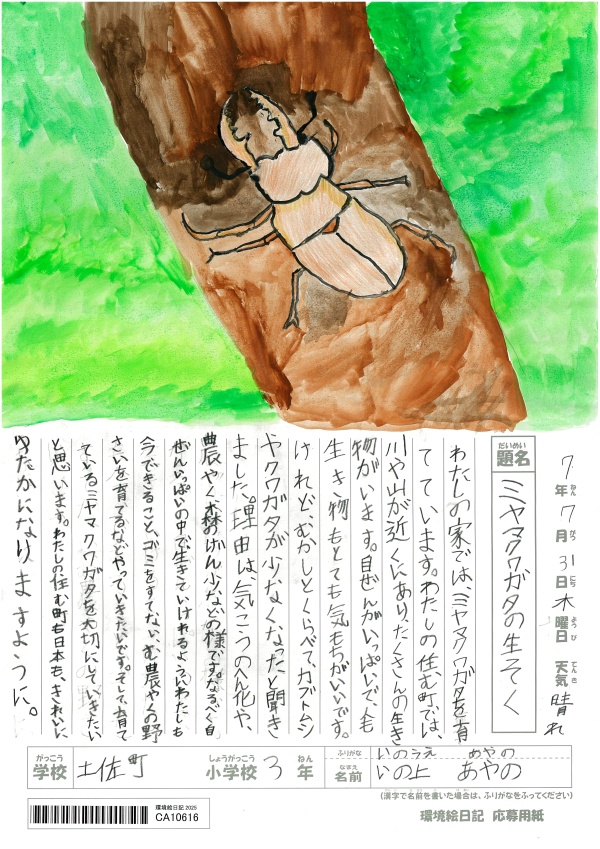 7年ねん7月がつ31日にち木曜日ようび 天気てんき晴れ
だいめい
題名
ミヤマクワガタの生そく
わたしの家では、ミヤマクワガタを育
てています。わたしの住む町では、
川や山が近くにあり、たくさんの生き
物がいます。自ぜんがいっぱいで、人も
生き物もとても気もちがいいです。
けれど、むかしとくらべて、カブトムシ
ヤクワガタが少なくなったと聞き
ました。理由は、気こうのへん化や、
農やく、森のげん少などの様です。なるべく自
ぜんいっぱいの中で生きていけれるように、わたしも
今できること、ゴミをすてない、む農やくの野
さいを育てるなどやっていきたいです。そして、育て
ているミヤマクワガタを大切にしていきたい
と思います。わたしの住む町も日本も、きれいに
ゆたかになりますように。
がっこう
学校
土佐町
しょうがっこう
小学校
3
ねん
年
ふりがな
いのうえ あやの
なまえ
名前
いの上 あやの
(漢字で名前を書いた場合は、ふりがなをふってください)
環境絵日記 2025
CA10616
環境絵日記 応募用紙